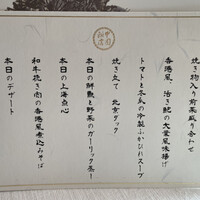 焼き物入り前菜盛り合わせ
香港風、活き鮑の大葉風味揚げ
トマトと冬瓜の冷製ふかひれスープ
焼き立て 北京ダック
本日の鮮魚と野菜のガーリック蒸し
本日の上海点心
和牛挽き肉の香港風煮込みそば
本日のデザート